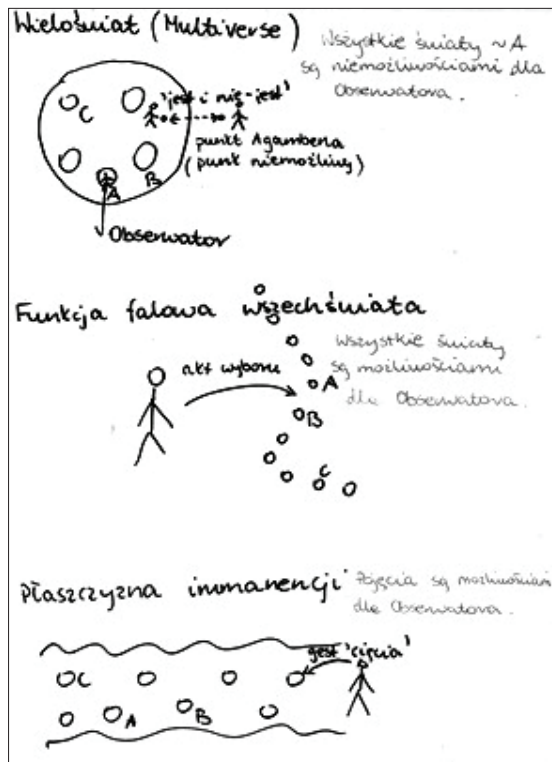 Wielośwat (Multiverse)
Wszystkie światy ~A
są niemożliwościami dla
Obserwatora.
C
'jest i nie-jest'
punkt Agambena
(punkt niemożliwy)
B
A
Obserwator
Funkcja falowa wszechświata
Wszystkie światy
są możliwościami
dla Obserwatora.
akt wyboru
A
B
C
Płaszczyzna immanencji
Zdjęcia są możliwościami
dla Obserwatora.
gest 'cięcia'
C
A
B